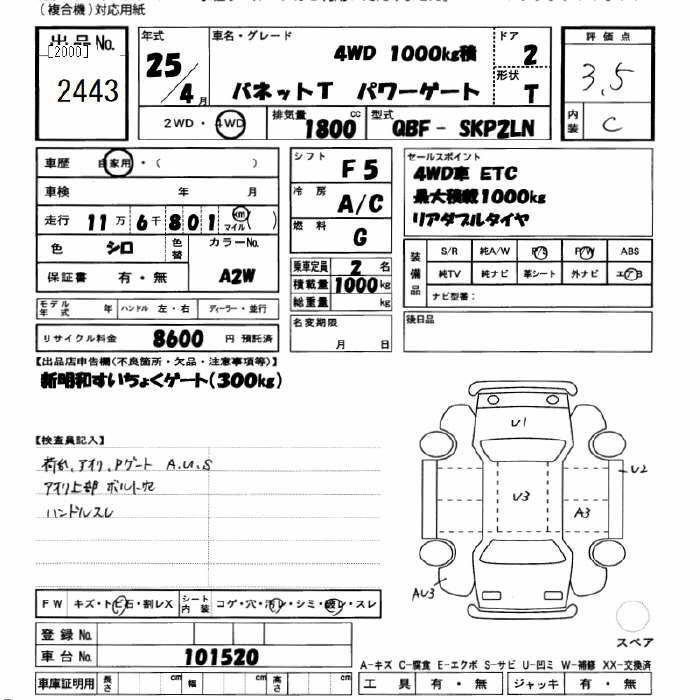 (複合機)対応用紙
出品No. [2000] 2443
年式 25/4月
車名・グレード 4WD 1000kg積
バネットT パワーゲート
ドア 2
形状 T
評価点 3.5
内装 C
2WD・4WD
排気量 1800 cc
型式 QBF - SKP2LN
車歴 自家用・( )
車検 年 月
走行 11万6千801 km マイル( )
色 シロ 色替 カラーNo. A2W
保証書 有・無
モデル年式 年 ハンドル 左・右 ディーラー・並行
リサイクル料金 8600 円 預託済
シフト F5
冷房 A/C
燃料 G
乗車定員 2 名
積載量 1000 kg
総重量 kg
名変期限 月 日
セールスポイント
4WD車 ETC
最大積載1000kg
リアダブルタイヤ
装備品 S/R 純A/W P/S P/W ABS
純TV 純ナビ 革シート 外ナビ エアB
ナビ型番:
後日品
【出品店申告欄(不良箇所・欠品・注意事項等)】
新明和すいちょくゲート(300kg)
【検査員記入】
荷台、アオリ、Pゲート A.U.S
アオリ上部 ボルト穴
ハンドルスレ
U1
U2
U3
A3
AU3
スペア
FW キズ・トビ石・割レX シート内装 コゲ・穴・汚レ・シミ・破レ・スレ
登録No.
車台No. 101520
車庫証明用 長さ cm 幅 cm 高さ cm
A-キズ C-腐食 E-エクボ S-サビ U-凹ミ W-補修 XX-交換済
工具 有・無 ジャッキ 有・無